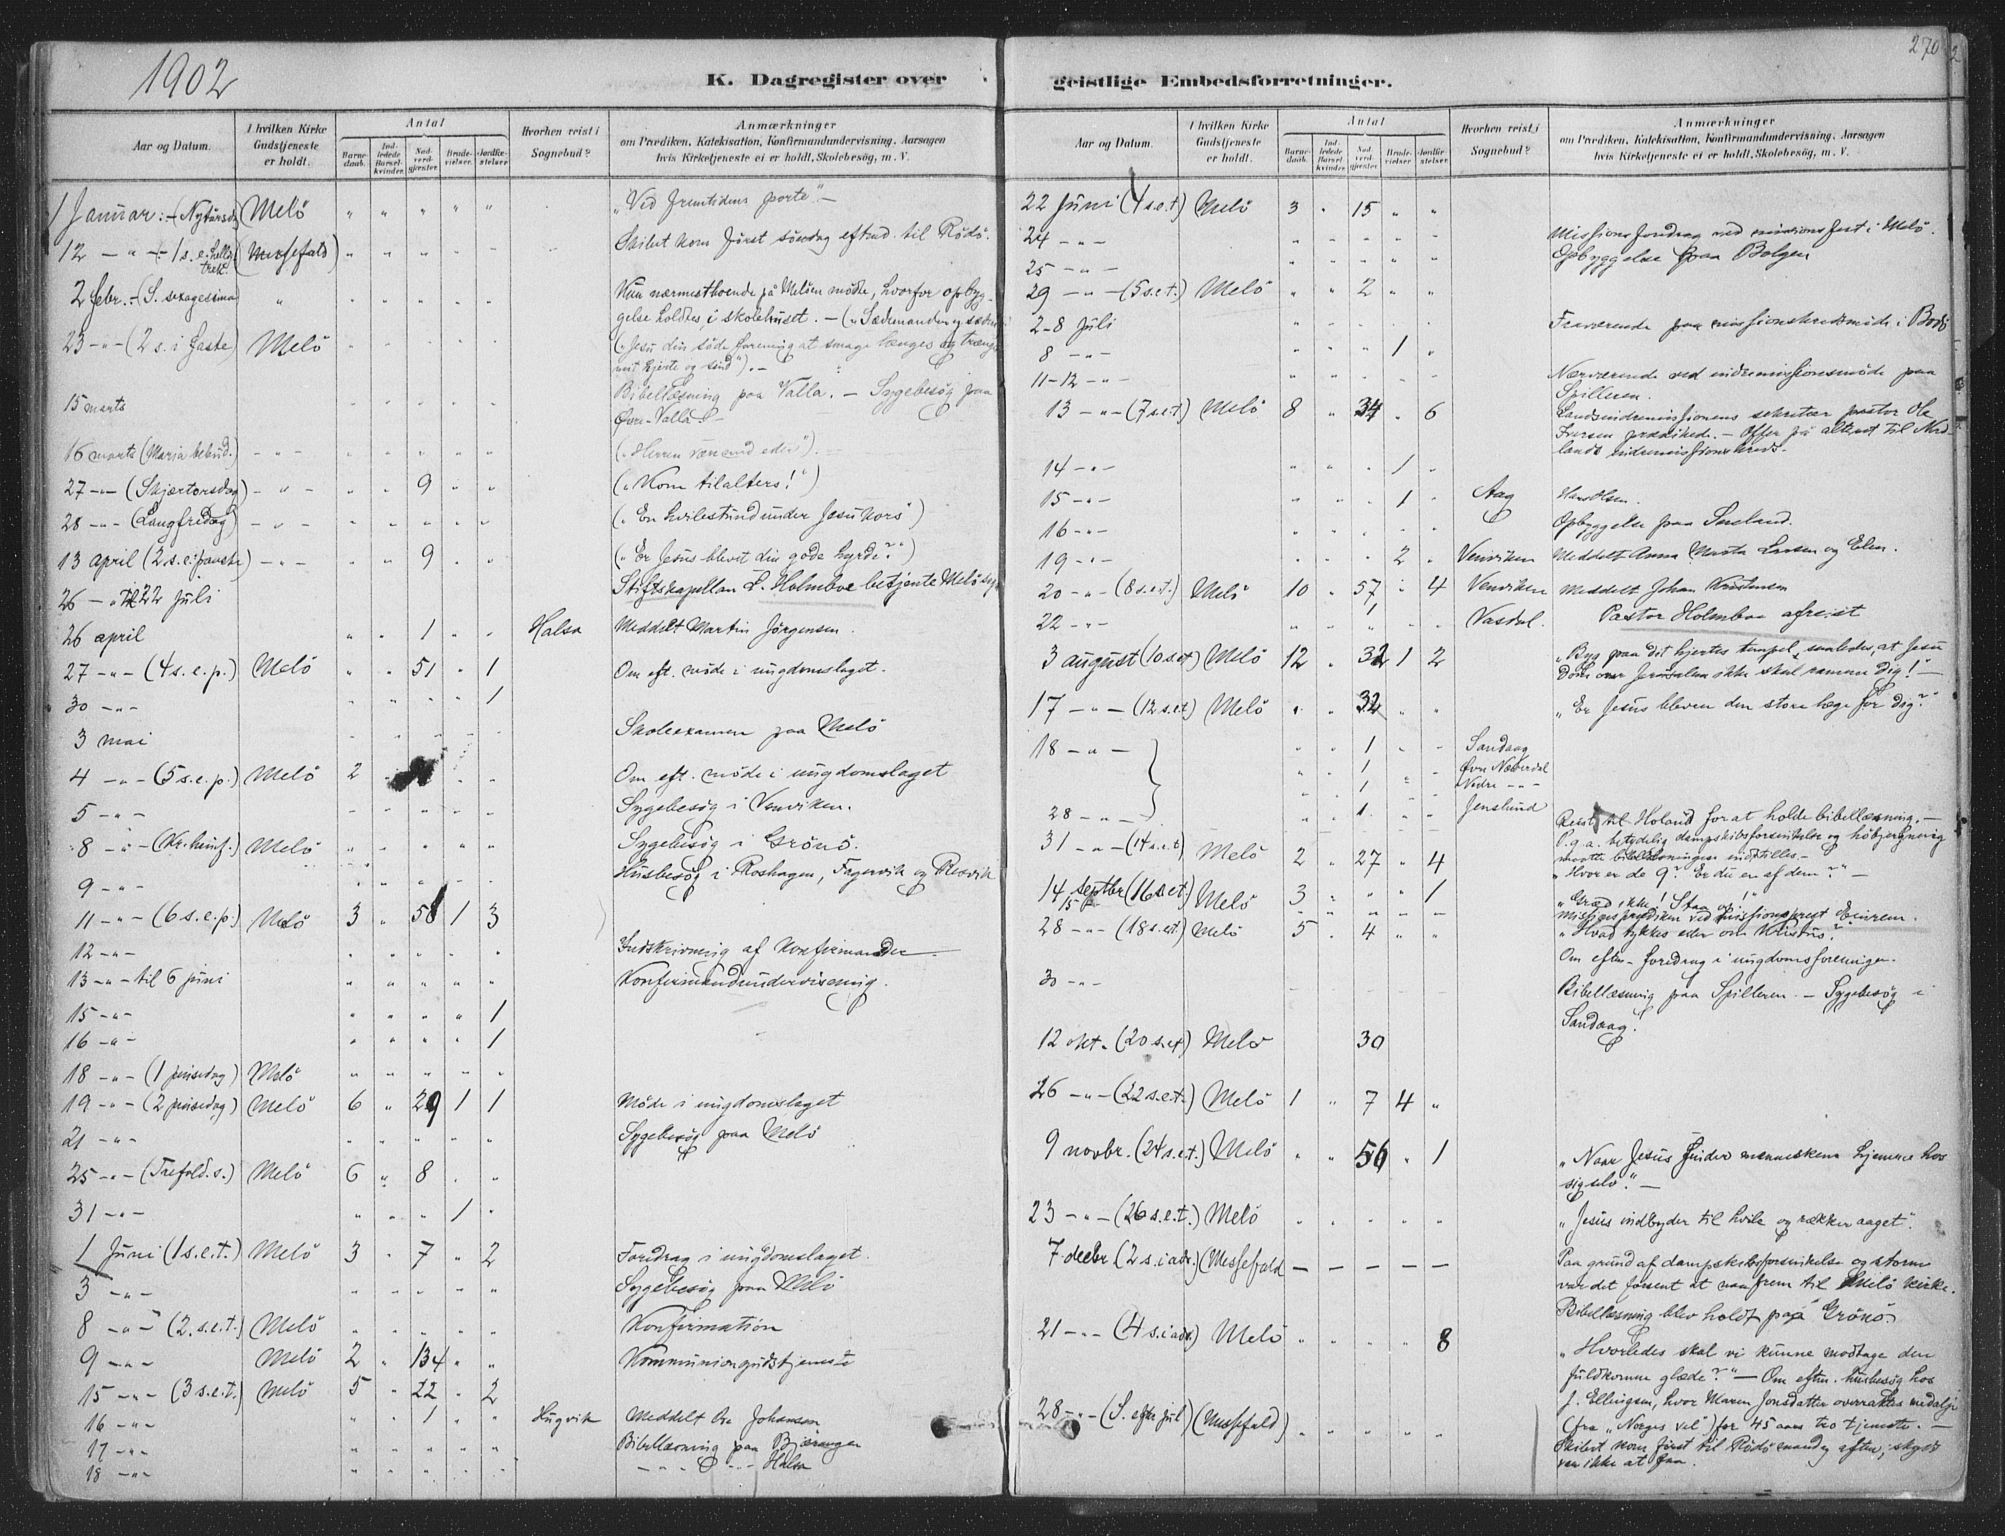 1902
K. Dagregister over
Aar og Datum.
I hvilken Kirke Gudstjeneste er holdt.
Antal
Barnedaab.
Indledede Barselkvinder.
Nadverdgjester.
Brudevielser.
Jordfæstelser.
Hvorhen reist i Sognebud?
Anmærkninger
om Prædiken, Katekisation, Konfirmandundervisning, Aarsagen
hvis Kirketjeneste ei er holdt, Skolebesøg, m. V.
1 Januar :- (Nytårsd) Melö " " " " " "Ved fremtidens porte" -
12 - " - 1 s. e. hellig trek. (Messefald) " " " " " Skibet kom först söndag efterd. til Rödö.
2 febr. - (S. sexagesima) " " " " " " Kun nærmestboende på Melöen mödte, hvorfor opbyg-
gelse holdtes i skolehuset. - (" Sædemanden og sæden
23 - " - (2 s. i faste) Melö " " " " " (" Jesu din söde forening at smage længes og trænges
mit hjerte og sind"). -
15 marts " " " " " Bibellæsning paa Valla. - Sygebesög paa
Övre-Valla
16 marts (Maria bebud.) - " - " " " " " (" Herren være med eder").
27 - " - (Skjærtorsdag) - " - " " 9 " " (" Kom til alters!")
28 - " - (Langfredag) - " - " " " " " (" En hvilestund under Jesu kors")
13 april (2 s. e. paaske) - " - " " 9 " " (" Er Jesus blevet din gode hyrde?")
26 - " - til 22 juli Stiftskapellan L. Holmboe betjente Melö
26 april " " 1 " " Halsa Meddelt Martin Jörgensen.
27 - " - (4 s. e. p.) Melö " " 51 " 1 Om eft. möde i ungdomslaget.
30 - " - " " " " 1
3 mai " " " " " Skoleexamen paa Melö
4 - " - (5 s. e. p.) Melö 2 " " " Om eft. möde i ungdomslaget
5 - " - " " " " " Sygebesög i Venviken.
8 - " - (Kr. himf.) Melö " " " " " Sygebesög i Grönö.
9 - " - " " " " " Husbesög i Roshagen, Fagervik og Resvik
11 - " - (6 s. e. p.) Melö 3 " 58 1 3
12 - " - " " " " " Indskrivning af konfirmander
13 - " - til 6 juni " " " " " Konfirmandundervisning.
15 - " - " " " " 1
16 - " - " " " " 1
18 - " - (1 pinsedag) Melö " " " " "
19 - " - (2 pinsedag) Melö 6 " 29 1 1 Möde i ungdomslaget
21 - " - " " " " " Sygebesög paa Melö
25 - " - (Trefold. s.) Melö 6 " 8 " "
31 - " - " " " 1 "
1 Juni (1 s. e. t.) Melö 3 " 7 " 2 Foredrag i ungdomslaget.
3 - " - " " " " " Sygebesög paa Melö
8 - " - (2. s. e. t.) Melö " " " " " Konfirmation
9 - " - Melö 2 " 134 " " Kommuniongudstjeneste
15 - " - (3 s. e. t.) Melö 5 " 22 " 2
16 - " - " " 1 " " Hugvik Meddelt Ole Johansen
17 - " - " " " " " Bibellæsning paa Bjærangen
18 - " - " " " " " - " - " - Halsa
270
geistlige Embedsforretninger.
Aar og Datum.
I hvilken Kirke Gudstjeneste er holdt.
Antal
Barnedaab.
Indledede Barselkvinder.
Nadverdgjester.
Brudevielser.
Jordfæstelser.
Hvorhen reist i Sognebud?
Anmærkninger
om Prædiken, Katekisation, Konfirmandundervisning, Aarsagen
hvis Kirketjeneste ei er holdt, Skolebesøg, m. V.
22 Juni (4 s. e. t) Melö 3 " 15 " "
24 - " - " " " " " Missions foredrag ved missionsfest i Melö.
25 - " - " " " " " Opbyggelse paa Bolgen
29 - " - (5 s. e. t.) Melö " " 2 " "
2-8 Juli " " " " " Fraværende paa missionskredsmöde i Bodö
8 - " - " " " 1 "
11-12 - " - " " " " " Nærværende ved indremissionsmöde paa
Spilleren.
13 - " - (7 s. e. t) Melö 8 " 34 " 6 Landsindremissionens sekretær pastor Ole
Iversen prædikede. - Offer på alteret til Nord-
lands indremissionskreds.
14 - " - " " " 1 "
15 - " - " " " 1 " Aag Hans Olsen.
16 - " - " " " " " Opbyggelse paa Sneland.
19 - " - " " " 2 " Venviken Meddelt Anna Marta Larsen og Elen.
20 - " - (8 s. e. t.) Melö 10 " 57 " 4 Venviken Meddelt Johan Kristensen
22 - " - " " 1 " " Vasdal. Pastor Holmboe afreist
3 august (10 s. e. t) Melö 12 " 32 1 2 "Byg paa dit hjertes tempel, saaledes, at Jesu
dom over Jerusalem ikke skal ramme dig!" -
17 - " - (12 s. e. t) Melö " " 32 " " "Er Jesus bleven den store læge for dig?"
18 - " - " " 1 " " Sandaag
" " 1 " " Övre Næverdal
" " 1 " " Nedre - " -
28 - " - " " 1 " " Jenslund
Reist til Holand for at holde bibellæsning. -
31 - " - (14 s. e. t) Melö 2 " 27 " 4 P. g. a. betydelig dampskibsforsinkelse og höbjergning
maatte bibellæsningen indstilles. -
"Hvor er de 9? Er du en af dem?" -
14 septbr (16 s. e. t.) Melö 3 " " " 1 "Græd ikke! Staa op!"
15 " " " " " Missionsprædiken ved missionsprest Einrem.
28 - " - (18 s. e. t) Melö 5 " 4 " " "Hvad tykkes eder om Kristus?"
Om eften. foredrag i ungdomsforeningen.
30 - " - Bibellæsning paa Spilleren. - Sygebesög i
Sandaag!
12 okt. (20 s. e. t) Melö 30
26 - " - (22 s. e. t.) Melö 1 " 7 4 "
9 novbr. (24 s. e. t.) Melö " " 56 " 1 "Naar Jesus finder menneskene hjemme hos
sig selv." -
23 - " - (26 s. e. t.) Melö " " " " " "Jesus indbyder til hvile og rækker aaget".
7 decbr (2 s. i adv.) (Messefald) - - - - - Paa grund af dampskibsforsinkelse og storm
var det forsent at naa frem til Melö kirke.
Bibellæsning blev holdt paa Grönö.
21 - " - (4 s. i adv) Melö " " " " 8 "Hvorledes skal vi kunne modtage den
fuldkomne glæde?" - Om eften. husbesög hos
J. Ellingsen, hvor Maren Jonsdatter overraktes medalje
(fra "Norges vel") for 45 aars tro tjeneste. -
28 - " - (S. efter jul) (Messefald) " " " " " Skibet kom först til Rödö mandag aften; skyds
var ikke at faa.